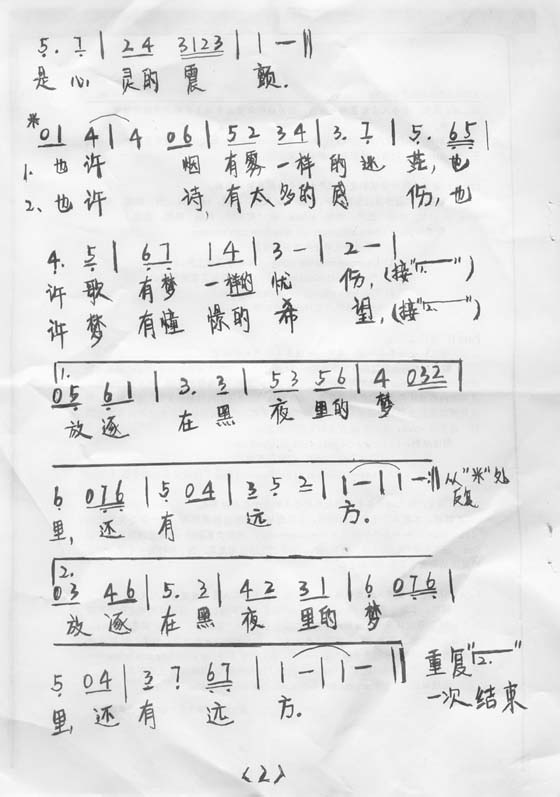 5. 7 | 24 3123 | 1 — ‖
是心 灵的 震 颤.
* 01 4 | 4 06 | 52 34 | 3. 1 | 5. 65 |
1. 也许 烟 有雾一样的迷 茫, 也
2. 也许 诗, 有太多的感 伤, 也
4. 5 | 67 14 | 3 — | 2 — |
许 歌 有梦 一样的 忧 伤, (接"1. ")
许 梦 有憧 憬的 希 望, (接"2. ")
1.
05 61 | 3. 3 | 53 56 | 4 032 |
放逐 在黑 夜 里的 梦
6 076 | 5 04 | 3 5 2 | 1 — | 1 — :‖ 从"*"处
反复
里, 还 有 远 方.
2.
03 46 | 5. 3 | 42 31 | 6 076 |
放逐 在黑 夜 里的 梦
5 04 | 3 7 67 | 1 — | 1 — ‖ 重复"2. "
里, 还有 远 方. 一次结束
<2>